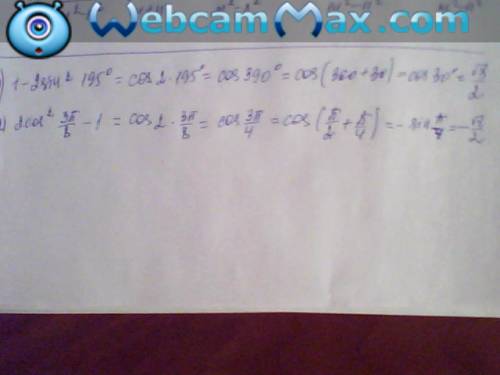 WebcamMax.com
) 1-2sin² 195° = cos 2·195° = cos 390° = cos(360+30) = cos 30° = √3/2
) 2cos² 3π/8 - 1 = cos 2·3π/8 = cos 3π/4 = cos(π/2 + π/4) = -sin π/4 = -√2/2